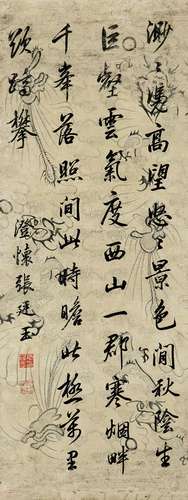 渺〻憑高望悠〻景色閒秋陰生
巨壑雲氣度西山一郡寒烟畔
千峯落照間此時瞻北極萬里
欲躋攀
澄懷張廷玉